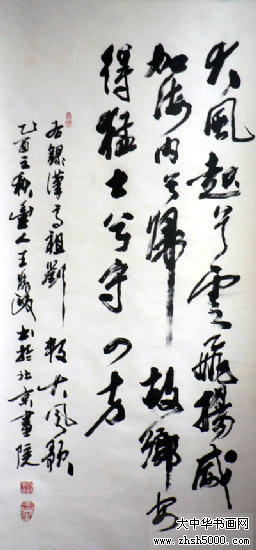 大風起兮雲飛揚威
加海内兮歸故鄉安
得猛士兮守四方
右錄漢高祖劉邦大風歌
乙酉秋豐人王書於北京畫院
大中华书画网
www.zhsh5000.com